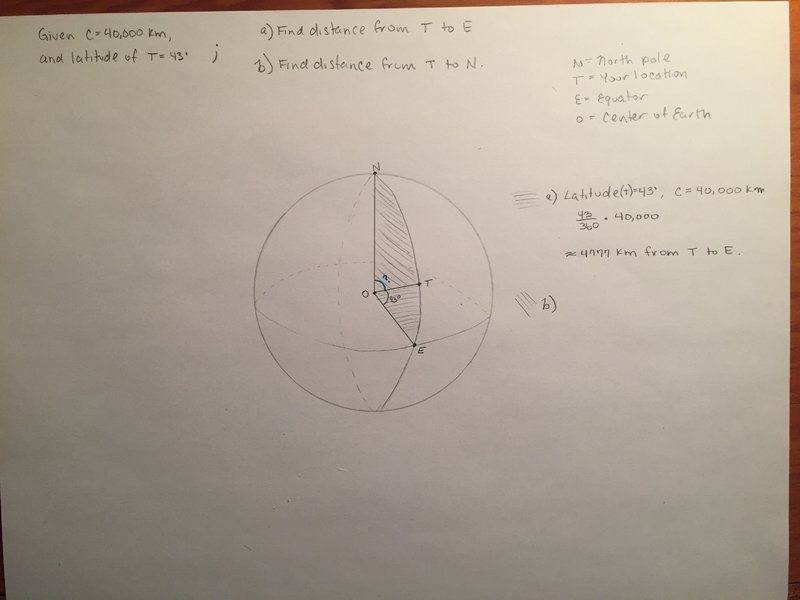 Given C=40,000 km,
and latitude of T=43° ;
a) Find distance from T to E
b) Find distance from T to N.
N= North pole
T= Your location
E= Equator
O= Center of Earth
N
O
?
43°
T
E
a) Latitude(T)=43°, C=40,000 km
43/360 • 40,000
≈ 4777 km from T to E.
b)